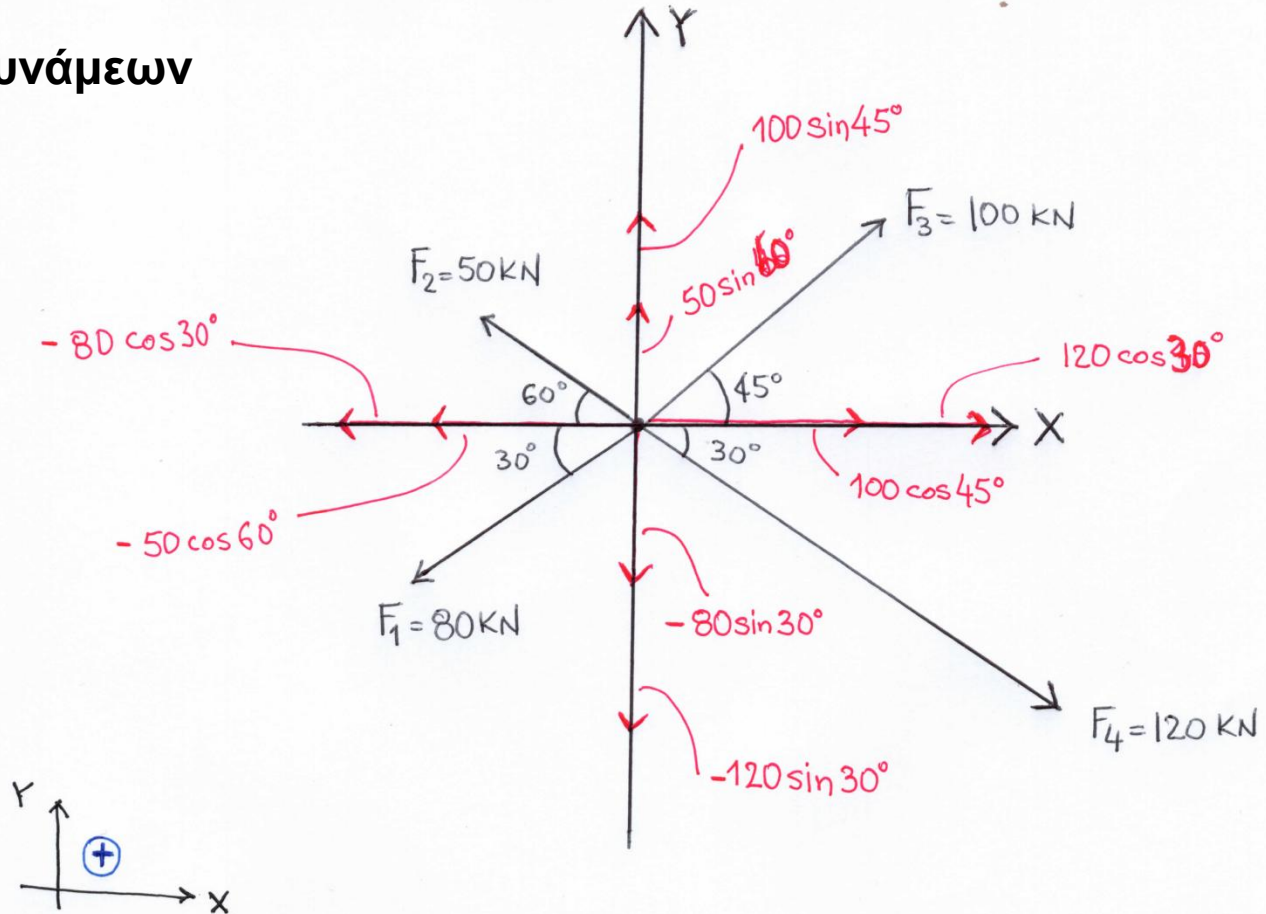 υνάμεων
Y
100 sin45°
F₃= 100 KN
50 sin 60°
F₂=50KN
- 80 cos30°
120 cos30°
60°
45°
X
30°
30°
100 cos45°
- 50 cos60°
F₁=80KN
-80sin30°
F₄=120 KN
-120 sin 30°
Y
+
X